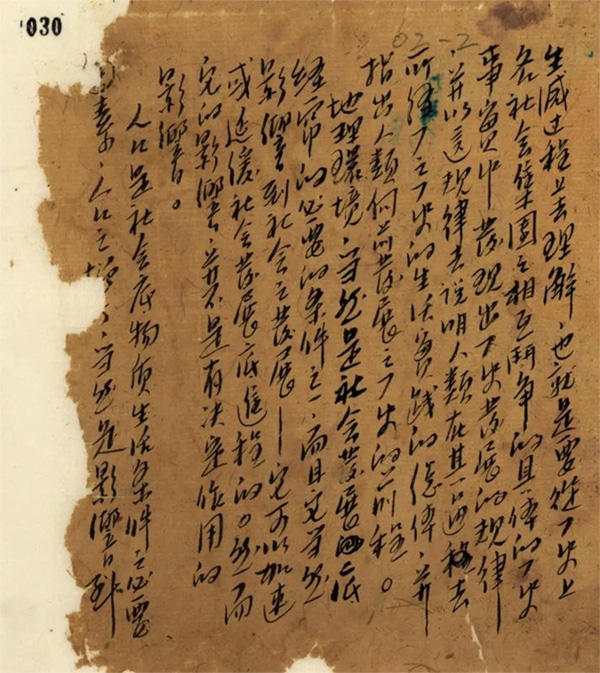 030
62-2
生滅过程上去理解，也就是要從历史上
各社会集團之相互鬥争的具体的历史
事實中發現出历史發展的规律
，并以這规律去說明人類在其一
所經历之历史的生活實踐的總体，并
指出人類向前發展之历史的前程。
地理環境，当然是社会發展底
經常的必要的条件之一，而且它当然
影響到社会之發展—它可以加速
或迟缓社会發展底進程的。然而
它的影響，并不是有决定作用的
影響。
人口是社会底物质生活条件之必要
素，人口之增，当然是影響到